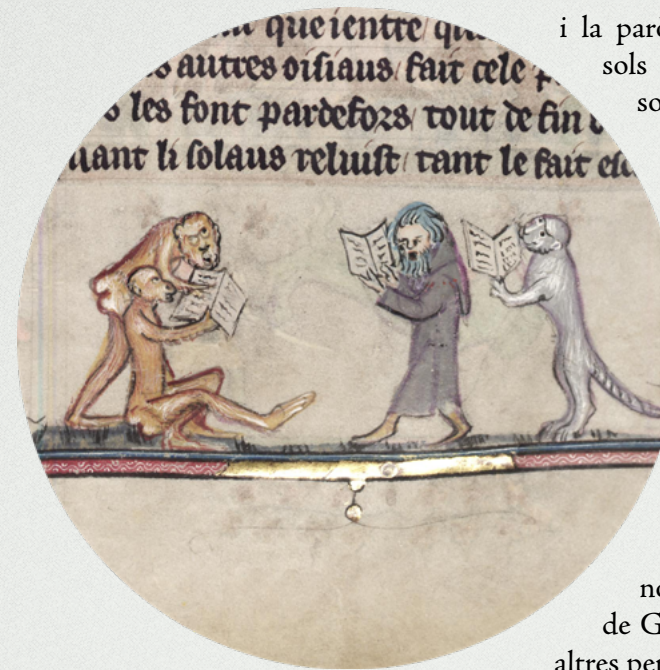 que ientre
autres oisiaus fait cele
les font pardefors tout de fin
li solaus reluist tant le fait
i la
sols
de
altres